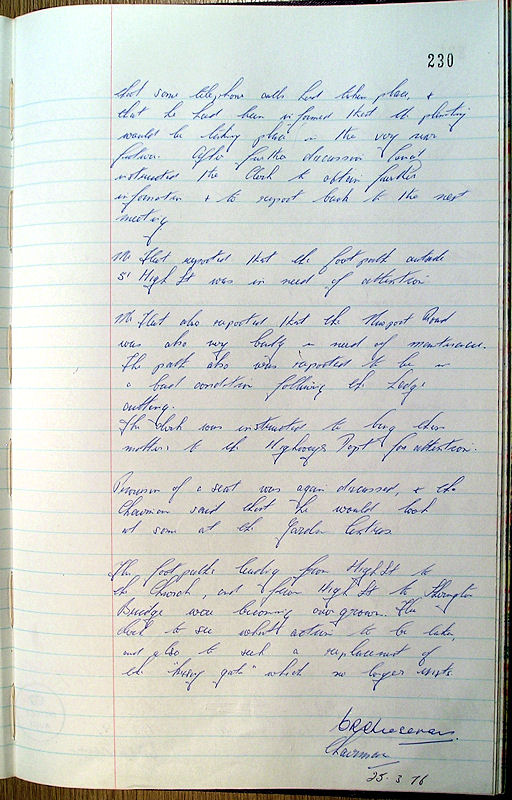 230
that some telephone calls had taken place, &
that he had been informed that the planting
would be taking place in the very near
future. After further discussion
instructed the Clerk to obtain further
information & to report back to the next
meeting
Mr Flat reported that the foot path outside
51 High St was in need of attention
Mr Flat also reported that the Road
was also very badly in need of maintenance.
The path also was reported to be in
a bad condition following the hedge
cutting.
The Clerk was instructed to bring these
matters to the Highways Dept for attention.
Provision of a seat was again discussed, & the
Chairman said that he would look
at some at the Garden Centres
The foot paths leading from High St to
the Church, and from High St to
Bridge were becoming overgrown. The
Clerk to see what action to be taken,
and also to seek a replacement of
the "kissing gate" which no longer exists
Chairman
25 3 76